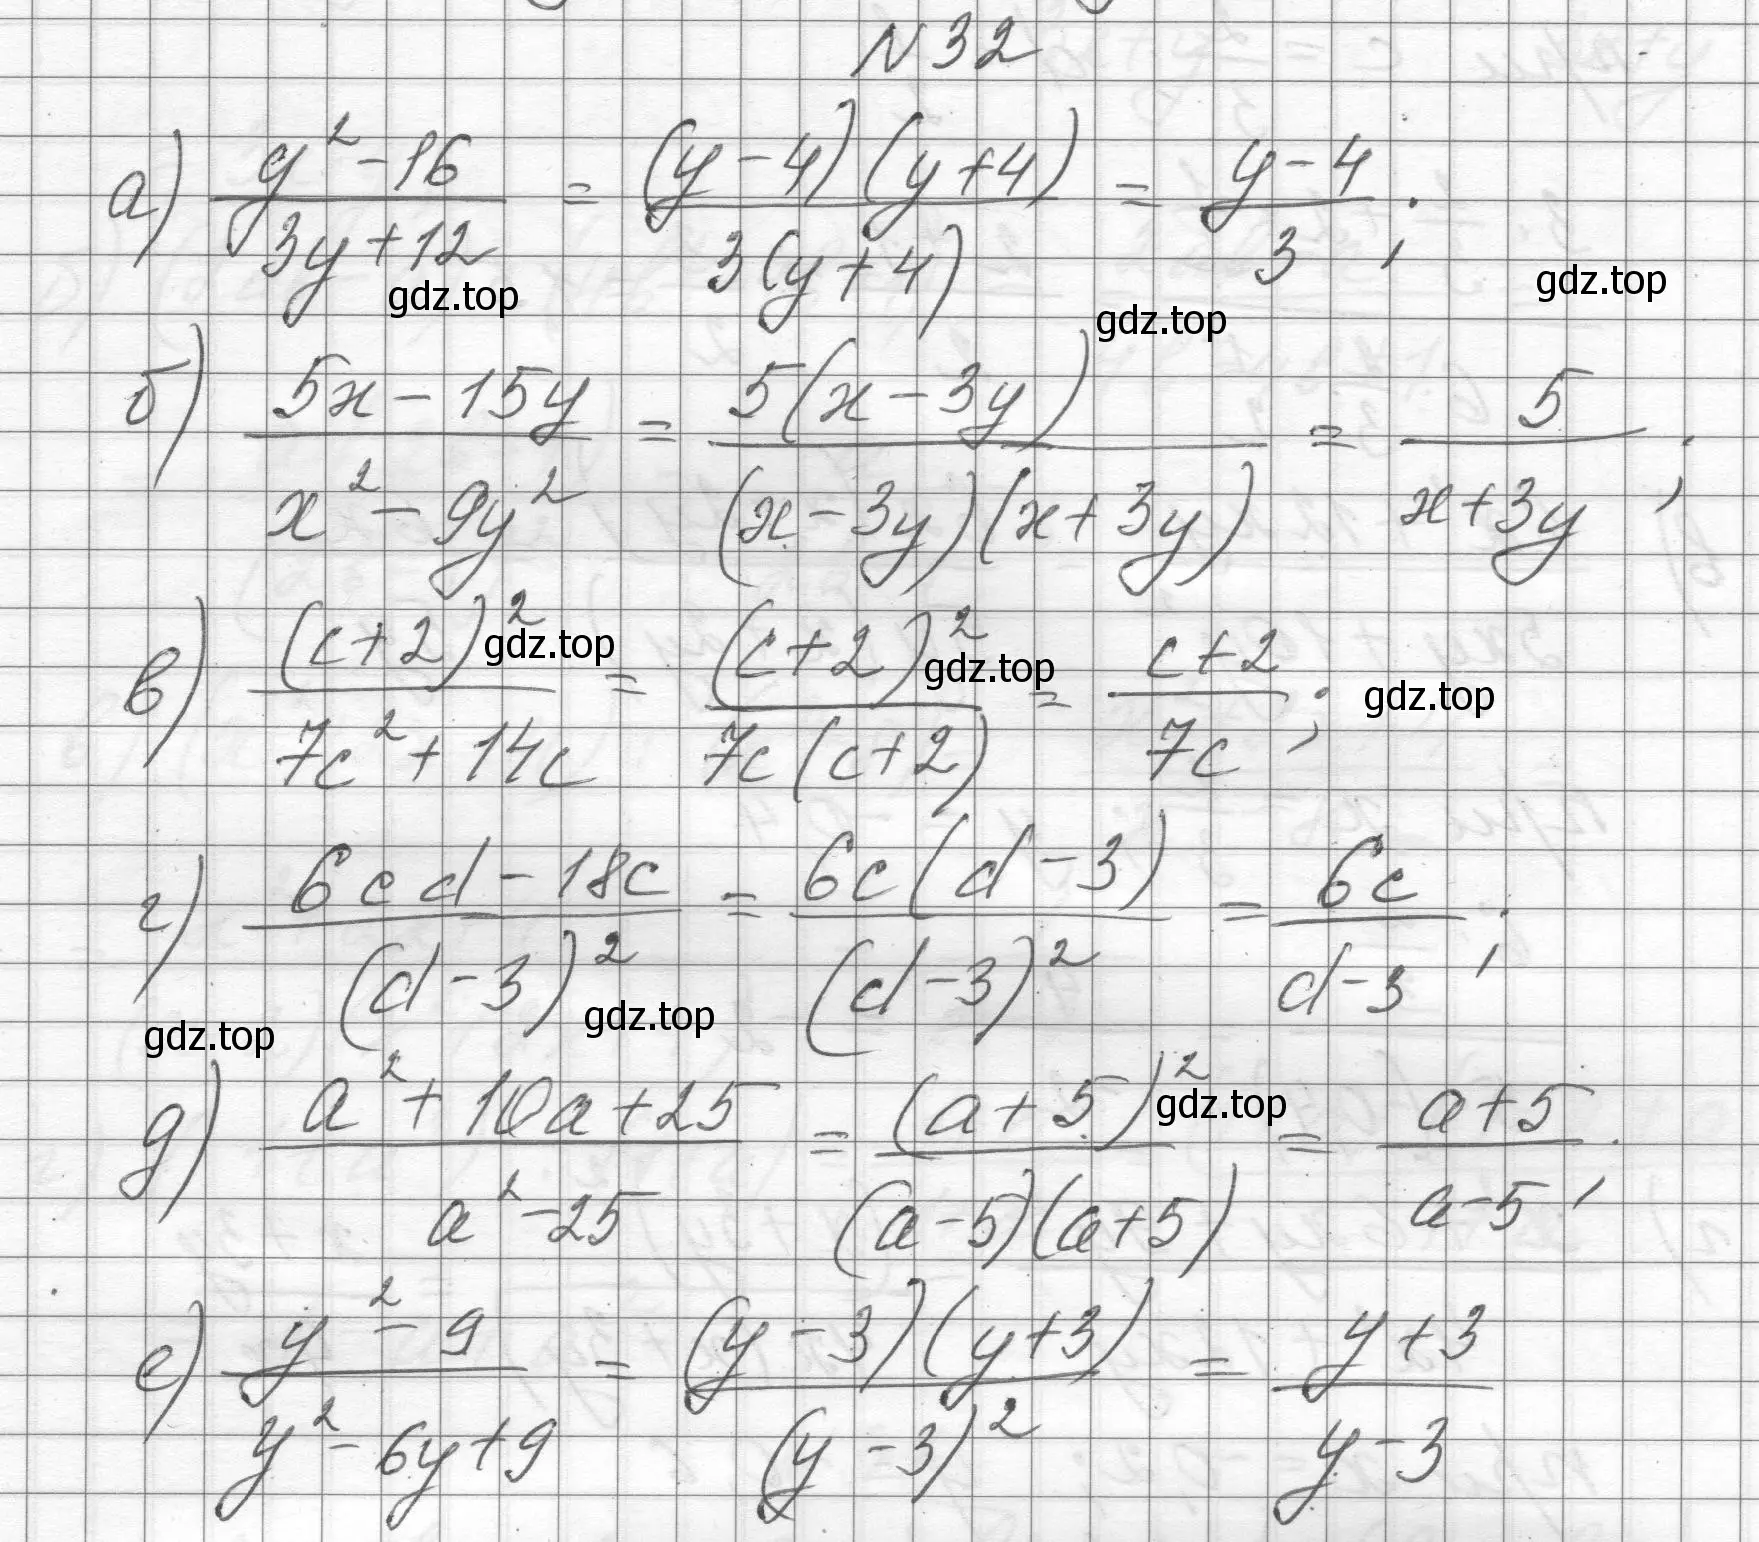 N 32
а) (y² - 16)/(3y + 12) = ((y - 4)(y + 4))/(3(y + 4)) = (y - 4)/3;
gdz.top gdz.top gdz.top
б) (5x - 15y)/(x² - 9y²) = (5(x - 3y))/((x - 3y)(x + 3y)) = 5/(x + 3y);
в) (c + 2)²/(7c² + 14c) = (c + 2)²/(7c(c + 2)) = (c + 2)/(7c);
gdz.top gdz.top gdz.top
г) (6cd - 18c)/(d - 3)² = (6c(d - 3))/(d - 3)² = 6c/(d - 3);
gdz.top gdz.top
д) (a² + 10a + 25)/(a² - 25) = (a + 5)²/((a - 5)(a + 5)) = (a + 5)/(a - 5);
gdz.top
е) (y² - 9)/(y² - 6y + 9) = ((y - 3)(y + 3))/(y - 3)² = (y + 3)/(y - 3)